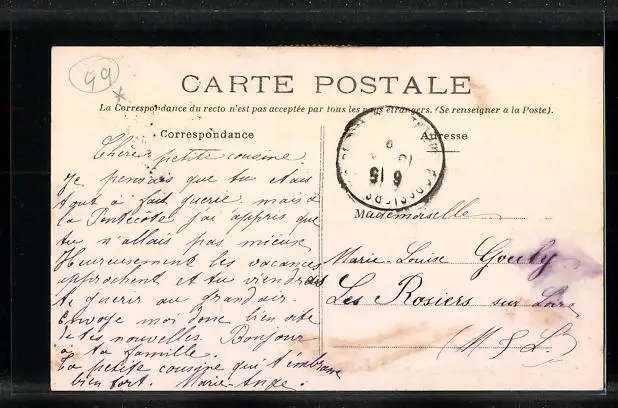 99
CARTE POSTALE
La Correspondance du recto n'est pas acceptée par tous les pays étrangers. (Se renseigner à la Poste).
Correspondance
Chère petite cousine.
Je pensais que tu étais
tout à fait guerie mais à
la Pentecôte j'ai appris que
tu n'allais pas mieux
Heureusement les vacances
approchent et tu viendras
te guerir au grand air.
Envoye moi donc bien vite
de tes nouvelles. Bonjour
à ta famille.
Ta petite cousine qui t'embrasse
bien fort. Marie-Ange.
Adresse
6 15
Mademoiselle
Marie-Louise Gouly
Les Rosiers sur Loire
(M & L)